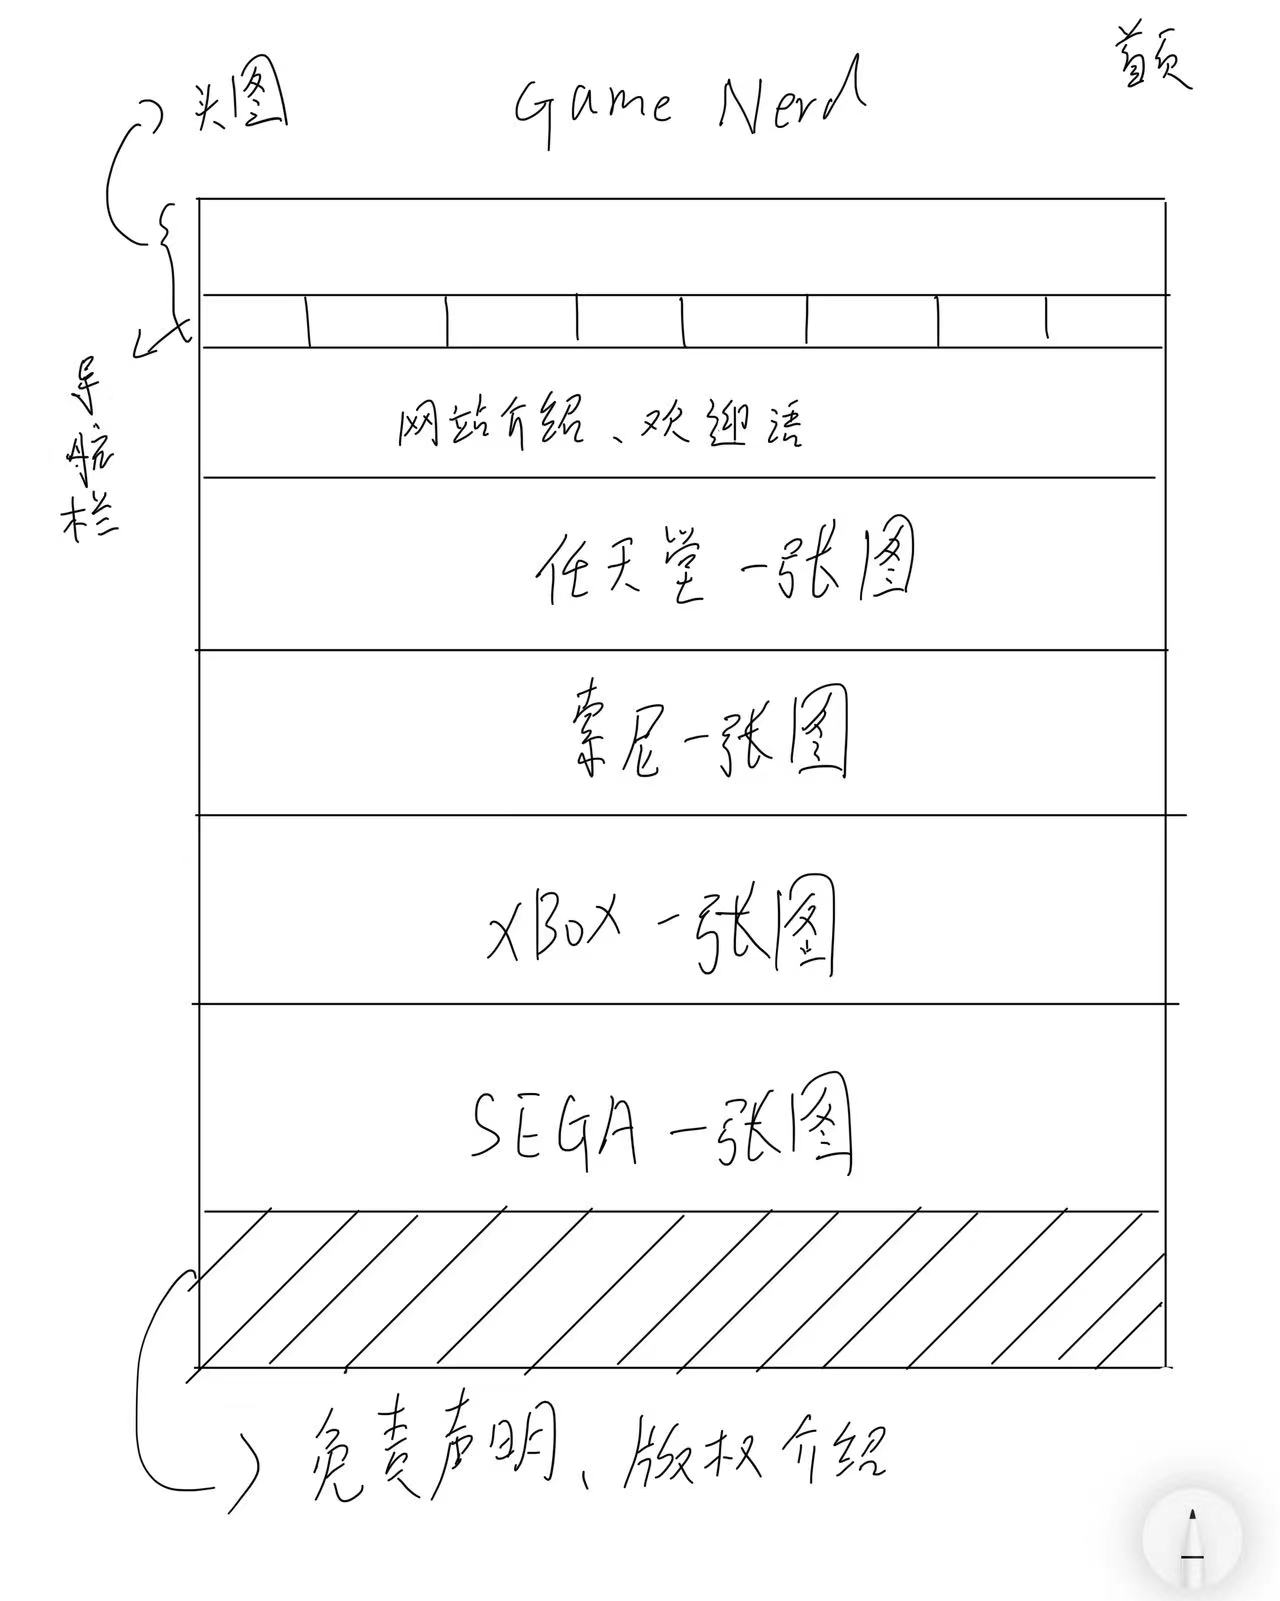 首页
头图
Game Nerd
导航栏
网站介绍、欢迎语
任天堂一张图
索尼一张图
XBOX一张图
SEGA一张图
免责声明、版权介绍